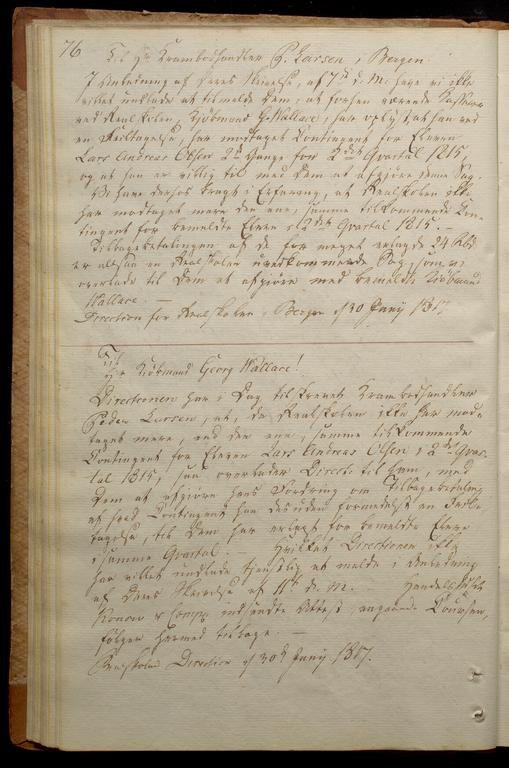 76
Til Hr Krambodhandler P. Larsen, Bergen.
I Anledning af Deres Skrivelse, af 7de d. M. have vi ikke
villet undlade at tilmelde Dem, at forhen værende Kasserer
ved Realskolen, Kjøbmand G. Wallace, har oplyst, at han ved
en Feiltagelse, har modtaget Contingent for Eleven
Lars Andreas Olsen 2de Gange for 2det Qvartal 1815,
og at han er villig til med Dem at afgjøre denne Sag.
Vi have derhos bragt i Erfaring, at Realskolen ikke
har modtaget mere den ene, Summe tilkommende Con-
tingent for bemeldte Eleven i 2det Qvartal 1815. —
Tilbagebetalingen af de for meget erlagde 24 Rbd
er altsaa en Realskolen uvedkommende Sag, som vi
overlade til Dem at afgjøre med bemeldte Kjøbmand
Wallace. —
Direction for Realskolen i Bergen d 30 Juny 1817
Til
Hr Kiøbmand Georg Wallace!
Directionen har i Dag tilskrevet Krambodhandler
Peder Larsen, at, da Realskolen ikke har mod-
taget mere, end den ene, Summe tilkommende
Contingent for Eleven Lars Andreas Olsen i 2det Qvar-
tal 1815, saa overlader Direct: til ham, med
Dem at afgjøre hans Fordring om Tilbagebetaling
af hvad Contingent han desuden formedelst en Feil-
tagelse, til Dem har erlagt for bemeldte Elev
i samme Qvartal. — Hvilket Directionen ikke
har villet undlade tjenstlig at melde i Anledning
af Deres Skrivelse af 11te d. M. Handelshuset
Konow & Comp: indsendte Attest, angaaende
følger hermed tilbage. —
Realskolens Direction d 30te Juny 1817.